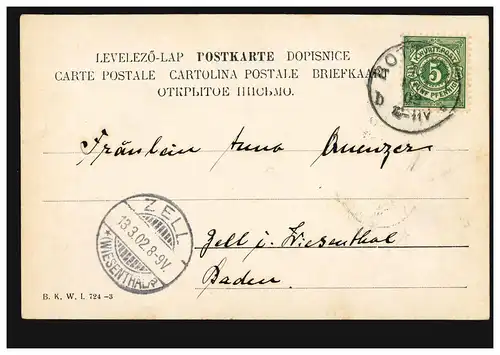 LEVELEZŐ-LAP POSTKARTE DOPISNICE
CARTE POSTALE CARTOLINA POSTALE BRIEFKAA
ОТКРЫТОЕ ПИСЬМО.
WÜRTTEMBERG
5
FÜNF PFENNIG
D
Fräulein Anna
ZELL
13.3.02.8-9V.
(WIESENTHAL)
Zell i. Wiesenthal
Baden
B. K. W. I. 724 -3